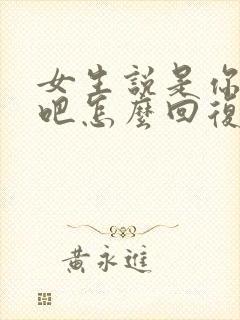 女生說是你
吧怎麼回復
黃永進